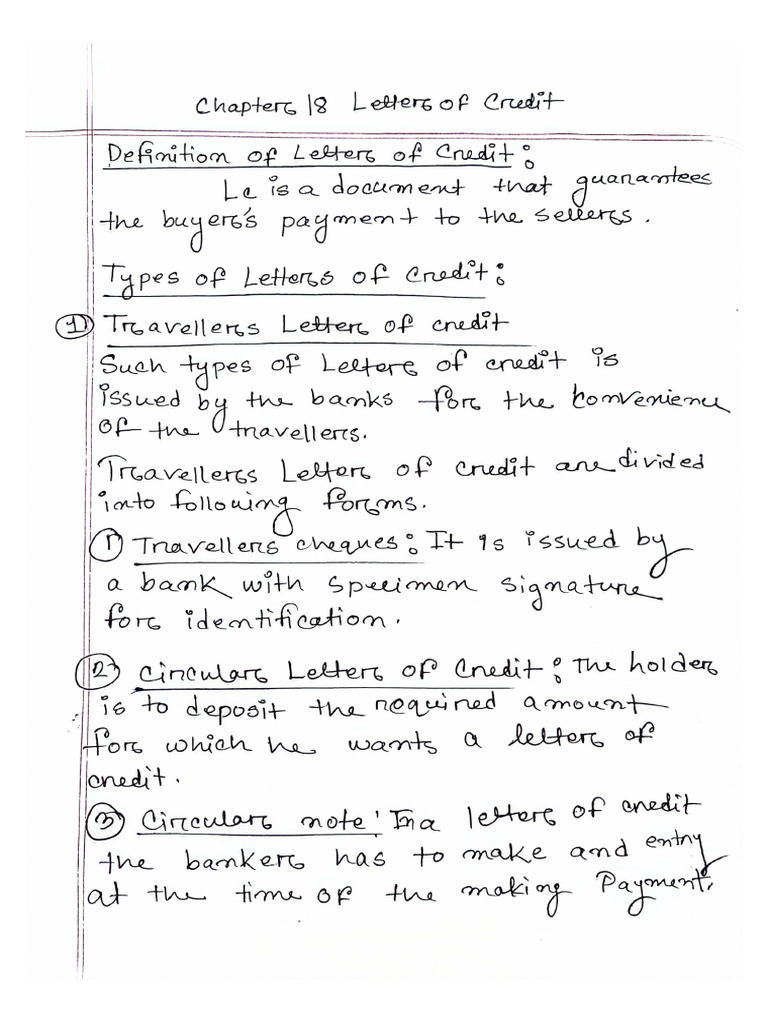 Chapter 18 Letter of Credit
Definition of Letter of Credit:
Lc is a document that guarantees
the buyer's payment to the sellers.
Types of Letters of Credit:
1) Travellers Letter of credit
Such types of Letter of credit is
issued by the banks for the convenience
of the travellers.
Travellers Letter of credit are divided
into following forms.
1) Travellers cheques: It is issued by
a bank with specimen signature
for identification.
2) Circular Letter of Credit: The holder
is to deposit the required amount
for which he wants a letter of
credit.
3) Circular note: In a letter of credit
the banker has to make and entry
at the time of the making Payment.